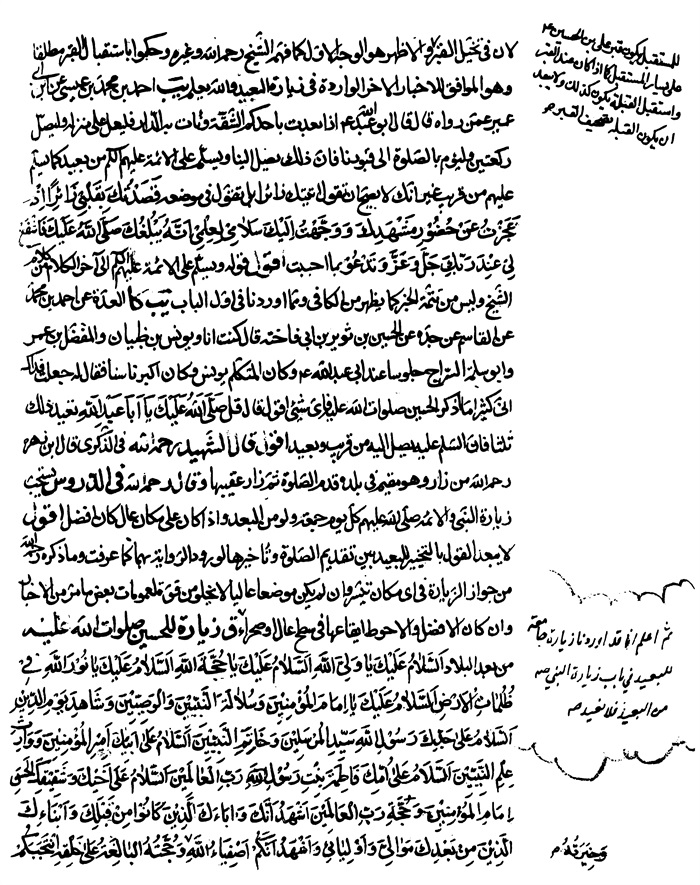 لان في تخيل القبر او الاظهر هو الوجه الاول كما فهم الشيخ رحمه الله وغيره وحكموا باستقبال القبر مطلقا
وهو الموافق للاخبار الاخر الواردة في زيارة البعيد والله يعلم يب احمد بن محمد بن عيسى عن ابن ابي
عمير عمن رواه قال قال ابو عبد الله ع اذا بعدت باحدكم الشقة ونأت به الدار فليعل على منزله وليصل
ركعتين وليؤم بالصلوة الى قبورنا فان ذلك يصل الينا ويسلم على الائمة عليهم الكم من بعيد كما يسلم
عليهم من قريب غير انك لا يصح ان تقول اتيتك زائرا بل تقول في موضعه قصدتك بقلبي زائرا اذ
عجزت عن حضور مشهدك ووجهت اليك سلامي لعلمي انه يبلغك صلى الله عليك فاشفع
لي عند ربك جل وعز وتدعو بما احببت اقول قوله ويسلم على الائمة عليهم الكم الى آخر الكلام من كلام
الشيخ وليس من تتمة الخبر كما يظهر من الكافي ومما اوردنا في اول الباب يب كا العدة عن احمد بن محمد
عن القاسم عن جده عن الحسين بن ثوير بن ابي فاخته قال كنت انا ويونس بن ظبيان والمفضل بن عمر
وابو سلمة السراج جلوسا عند ابي عبد الله ع وكان المتكلم يونس وكان اكبرنا سنا فقال له جعلت فداك
اني كثيرا ما اذكر الحسين صلوات الله عليه فاي شئ اقول قال قل صلى الله عليك يا ابا عبد الله تعيد ذلك
ثلثا فان السلم عليه يصل اليه من قريب وبعيد اقول قال الشهيد رحمه الله في الذكرى قال ابن زهره
رحمه الله من زار وهو مقيم في بلده قدم الصلوة ثم زار عقيبها وقال رحمه الله في الدروس يستحب
زيارة النبي والائمه صلى الله عليهم كل يوم جمعة ولو من البعد واذا كان على مكان عال كان افضل اقول
لا يبعد القول بالتخيير للبعيد بين تقديم الصلوة وتاخيرها لورود الرواية بهما كما عرفت وما ذكره رحمه الله
من جواز الزيارة في اي مكان تيسر وان لم يكن موضعا عاليا لا يخلو من قوة لعمومات بعض ما مر من الاخبار
وان كان الافضل والاحوط ايقاعها في سطح عال او صحراء ق زيارة للحسين صلوات الله عليه
من بعد البلاد السلام عليك يا ولي الله السلام عليك يا حجة الله السلام عليك يا نور الله في
ظلمات الارض السلام عليك يا امام المؤمنين وسلالة النبيين والوصيين وشاهد يوم الدين
السلام على جدك رسول الله سيد المرسلين وخاتم النبيين السلام على ابيك امير المؤمنين ووارث
علم النبيين السلام على امك فاطمة بنت رسول الله رب العالمين السلام على اخيك وشقيقك الحسن
امام المؤمنين وحجة رب العالمين اشهد انك واباءك الذين كانوا من قبلك وابناءك
الذين من بعدك موالي واوليائي واشهد انكم اصفياء الله وحجته البالغة على خلقه انتجبكم
للمستقبل يكون قبر علي بن الحسين ع
على يسار المستقبل كما اذا كان عند القبر
واستقبل القبلة يكون كذلك ولا يبعد
ان يكون القبلة تصحيف القبر
ثم اعلم انا قد اوردنا زيارة جامعة
للبعيد في باب زيارة النبي صه
من البعيد فلا نعيد صه
وخيرته م